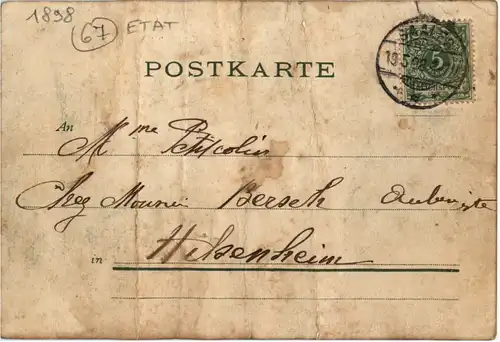 1898
67 ETAT
5
POSTKARTE
An Mme Petitcolin
Chez Berseth Aubergiste
in Hilsenheim